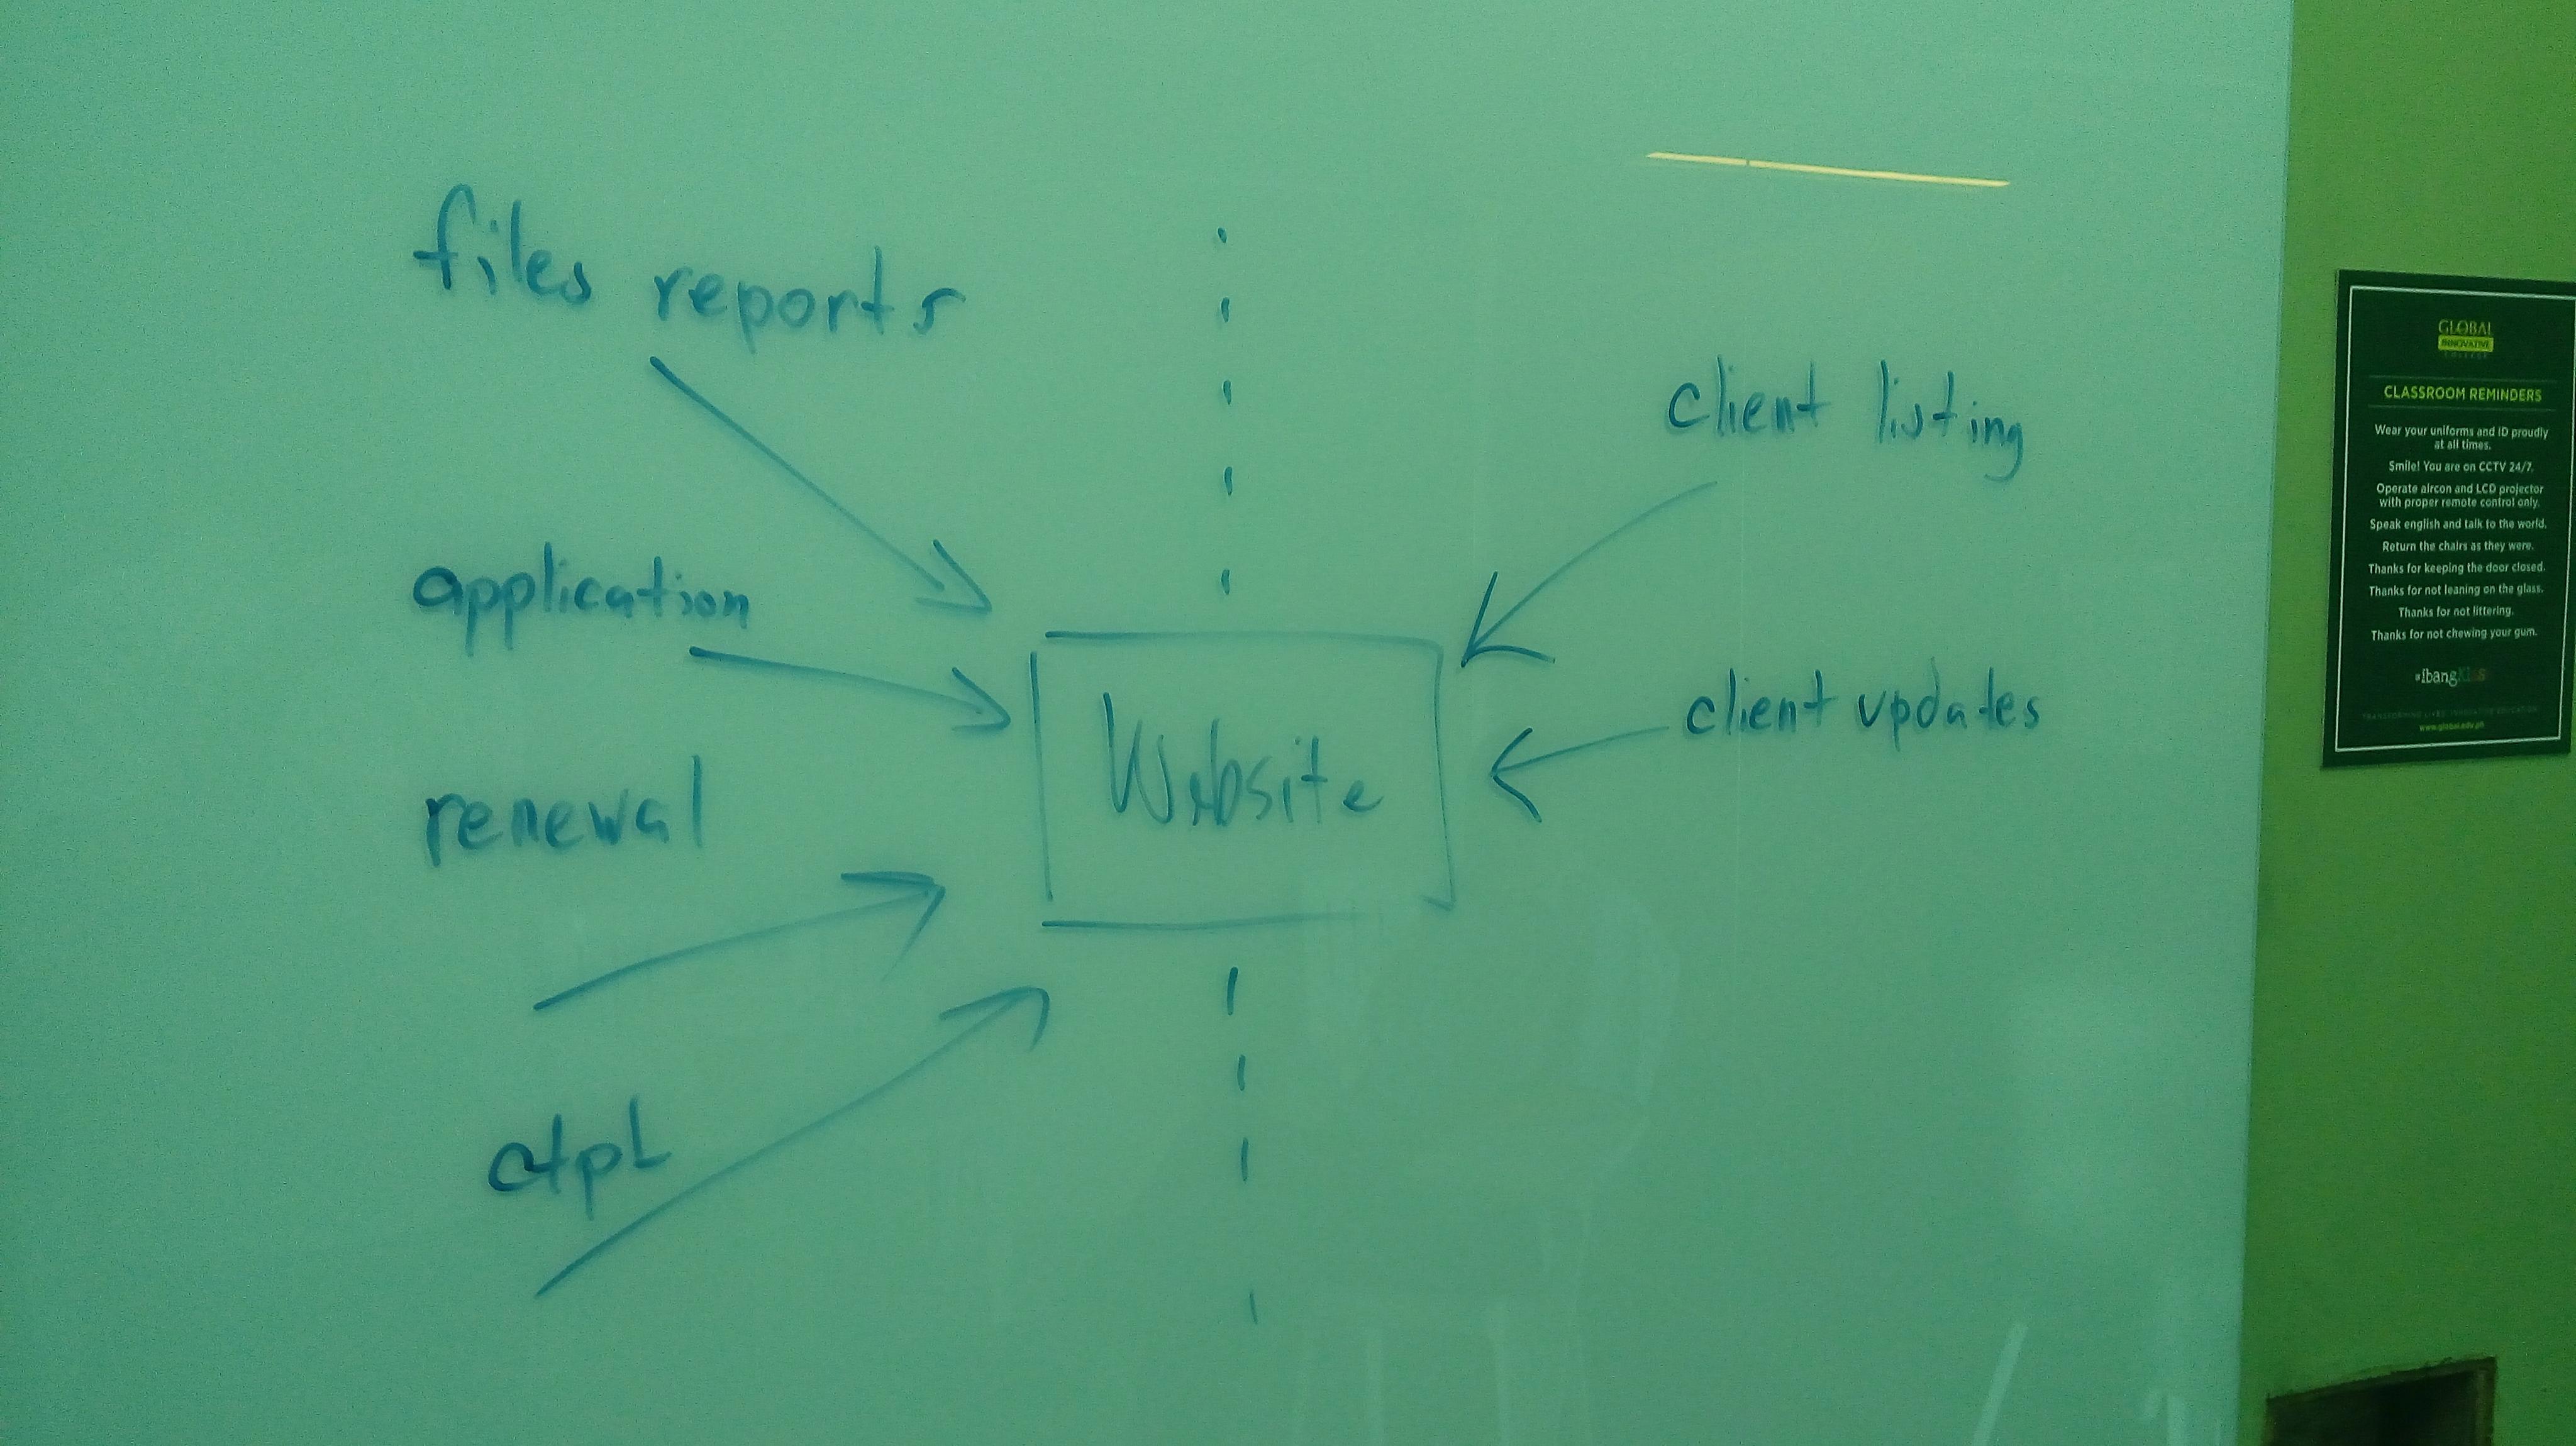 files reports
application
renewal
ctpl
Website
client listing
client updates
GLOBAL
INNOVATIVE
COLLEGE
CLASSROOM REMINDERS
Wear your uniforms and ID proudly
at all times.
Smile! You are on CCTV 24/7.
Operate aircon and LCD projector
with proper remote control only.
Speak english and talk to the world.
Return the chairs as they were.
Thanks for keeping the door closed.
Thanks for not leaning on the glass.
Thanks for not littering.
Thanks for not chewing your gum.
www.global.edu.ph